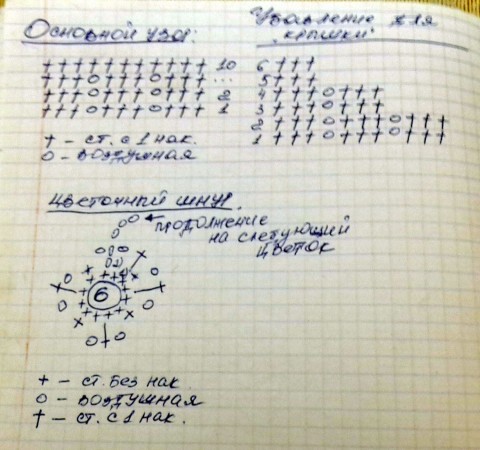 Основной узор:
Убавление для
"крышки"
+++++++++++ 10
+++o+++o+++ ...
+++o+++o+++ 2
+++o+++o+++ 1
6 +++
5 +++
4 +++o+++
3 +++o+++
2 +++o+++o+++
1 +++o+++o+++
† - ст. с 1 нак.
o - воздушная
Цветочный шнур.
продолжение
на следующий
цветок
6
+ - ст. без нак.
o - воздушная
† - ст. с 1 нак.